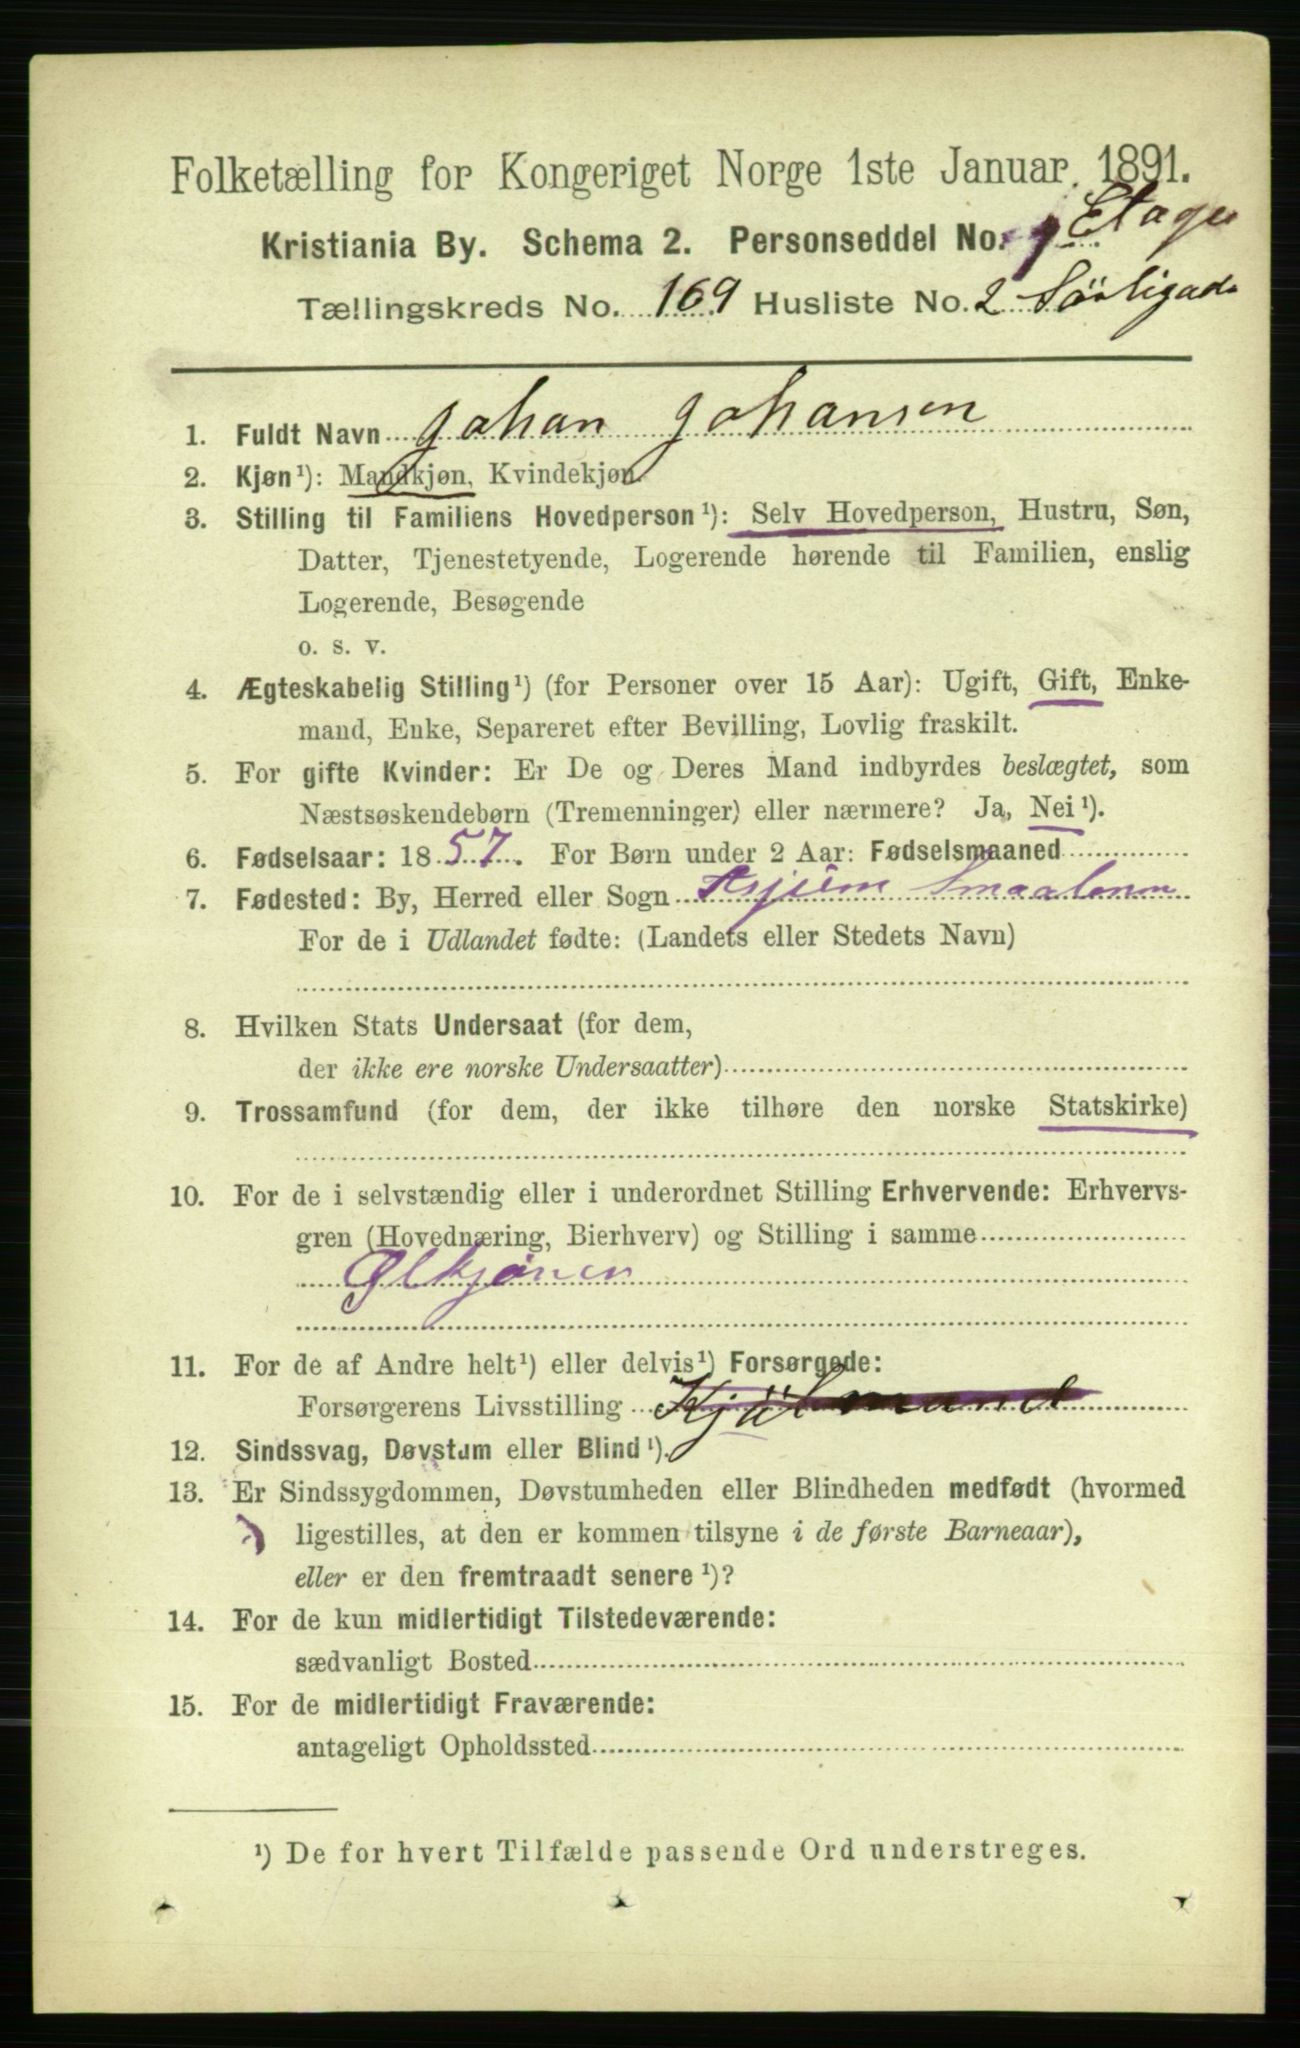 Folketælling for Kongeriget Norge 1ste Januar 1891.
Kristiania By. Schema 2. Personseddel No. 1 Etage
Tællingskreds No. 169 Husliste No. 2 Sörligade
1. Fuldt Navn Johan Johansen
2. Kjøn¹): Mandkjøn, Kvindekjøn.
3. Stilling til Familiens Hovedperson¹): Selv Hovedperson, Hustru, Søn,
Datter, Tjenestetyende, Logerende hørende til Familien, enslig
Logerende, Besøgende
o. s. v.
4. Ægteskabelig Stilling¹) (for Personer over 15 Aar): Ugift, Gift, Enke-
mand, Enke, Separeret efter Bevilling, Lovlig fraskilt.
5. For gifte Kvinder: Er De og Deres Mand indbyrdes beslægtet, som
Næstsøskendebørn (Tremenninger) eller nærmere? Ja, Nei¹).
6. Fødselsaar: 1857. For Børn under 2 Aar: Fødselsmaaned
7. Fødested: By, Herred eller Sogn Smaalenene
For de i Udlandet fødte: (Landets eller Stedets Navn)
8. Hvilken Stats Undersaat (for dem,
der ikke ere norske Undersaatter)
9. Trossamfund (for dem, der ikke tilhøre den norske Statskirke)
10. For de i selvstændig eller i underordnet Stilling Erhvervende: Erhvervs-
gren (Hovednæring, Bierhverv) og Stilling i samme
Ølkjører
11. For de af Andre helt¹) eller delvis¹) Forsørgede:
Forsørgerens Livsstilling
12. Sindssvag, Døvstum eller Blind¹).
13. Er Sindssygdommen, Døvstumheden eller Blindheden medfødt (hvormed
ligestilles, at den er kommen tilsyne i de første Barneaar),
eller er den fremtraadt senere¹)?
14. For de kun midlertidigt Tilstedeværende:
sædvanligt Bosted
15. For de midlertidigt Fraværende:
antageligt Opholdssted
¹) De for hvert Tilfælde passende Ord understreges.